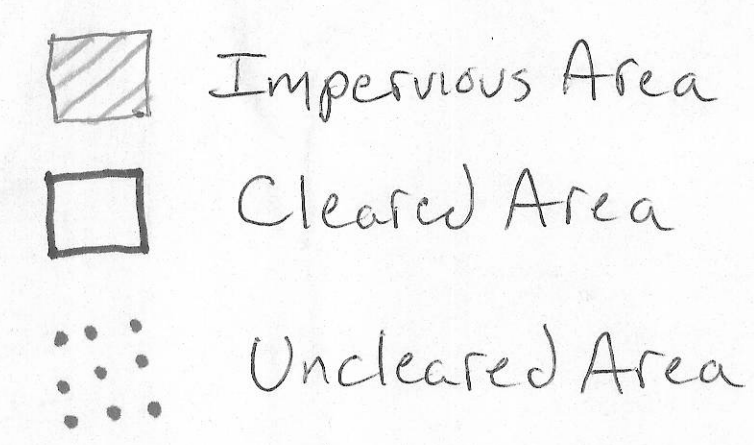 Impervious Area
Cleared Area
Uncleared Area